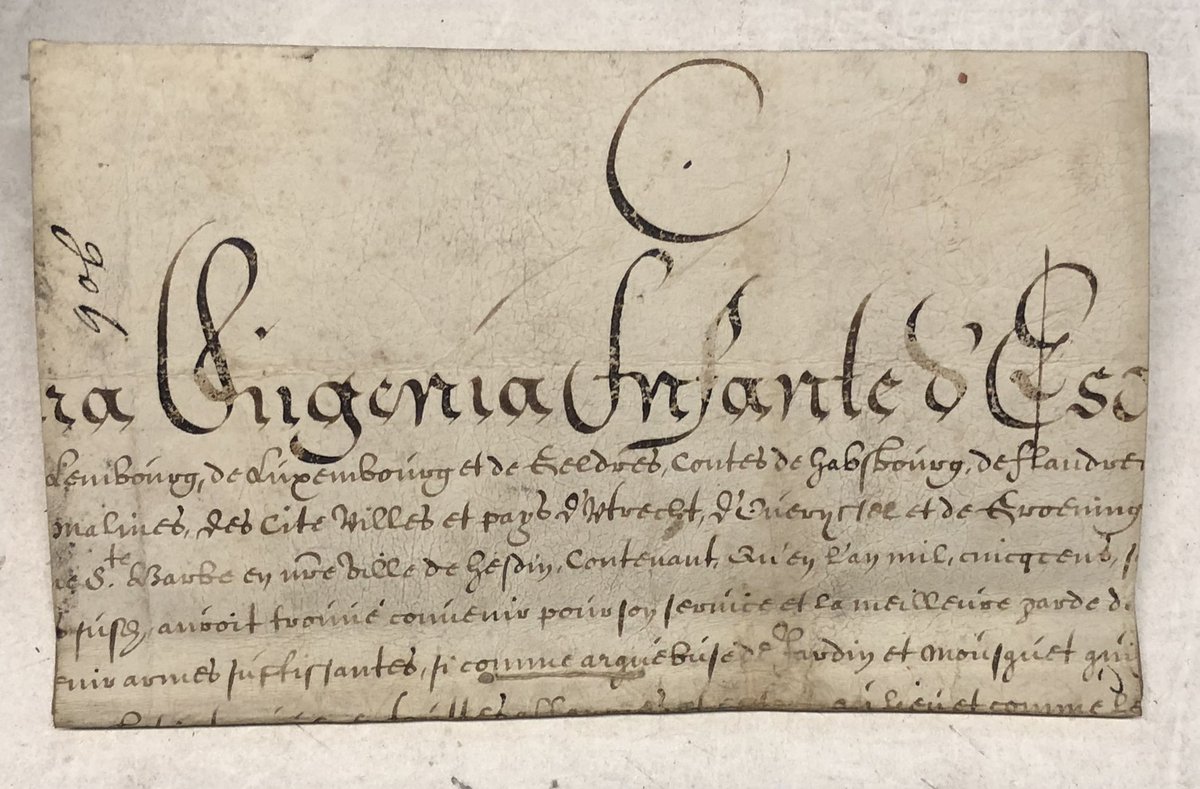 906
ra Eugenia Infante d'Es
Lembourg, de Luxembourg et de Geldres, Contes de habsbourg, de flandres
malines, des Cite Villes et pays d'Utrecht, d'Overyssel et de Groening
S.te Barbe en nre Ville de hesdin, Contenant, Qu'en l'an mil, cincqcens,
susd, auroit trouvé convenir pour son service et la meilleure garde d
enir armes suffissantes, si comme arquebuse de Jardin et Mousquet qui
et comme le